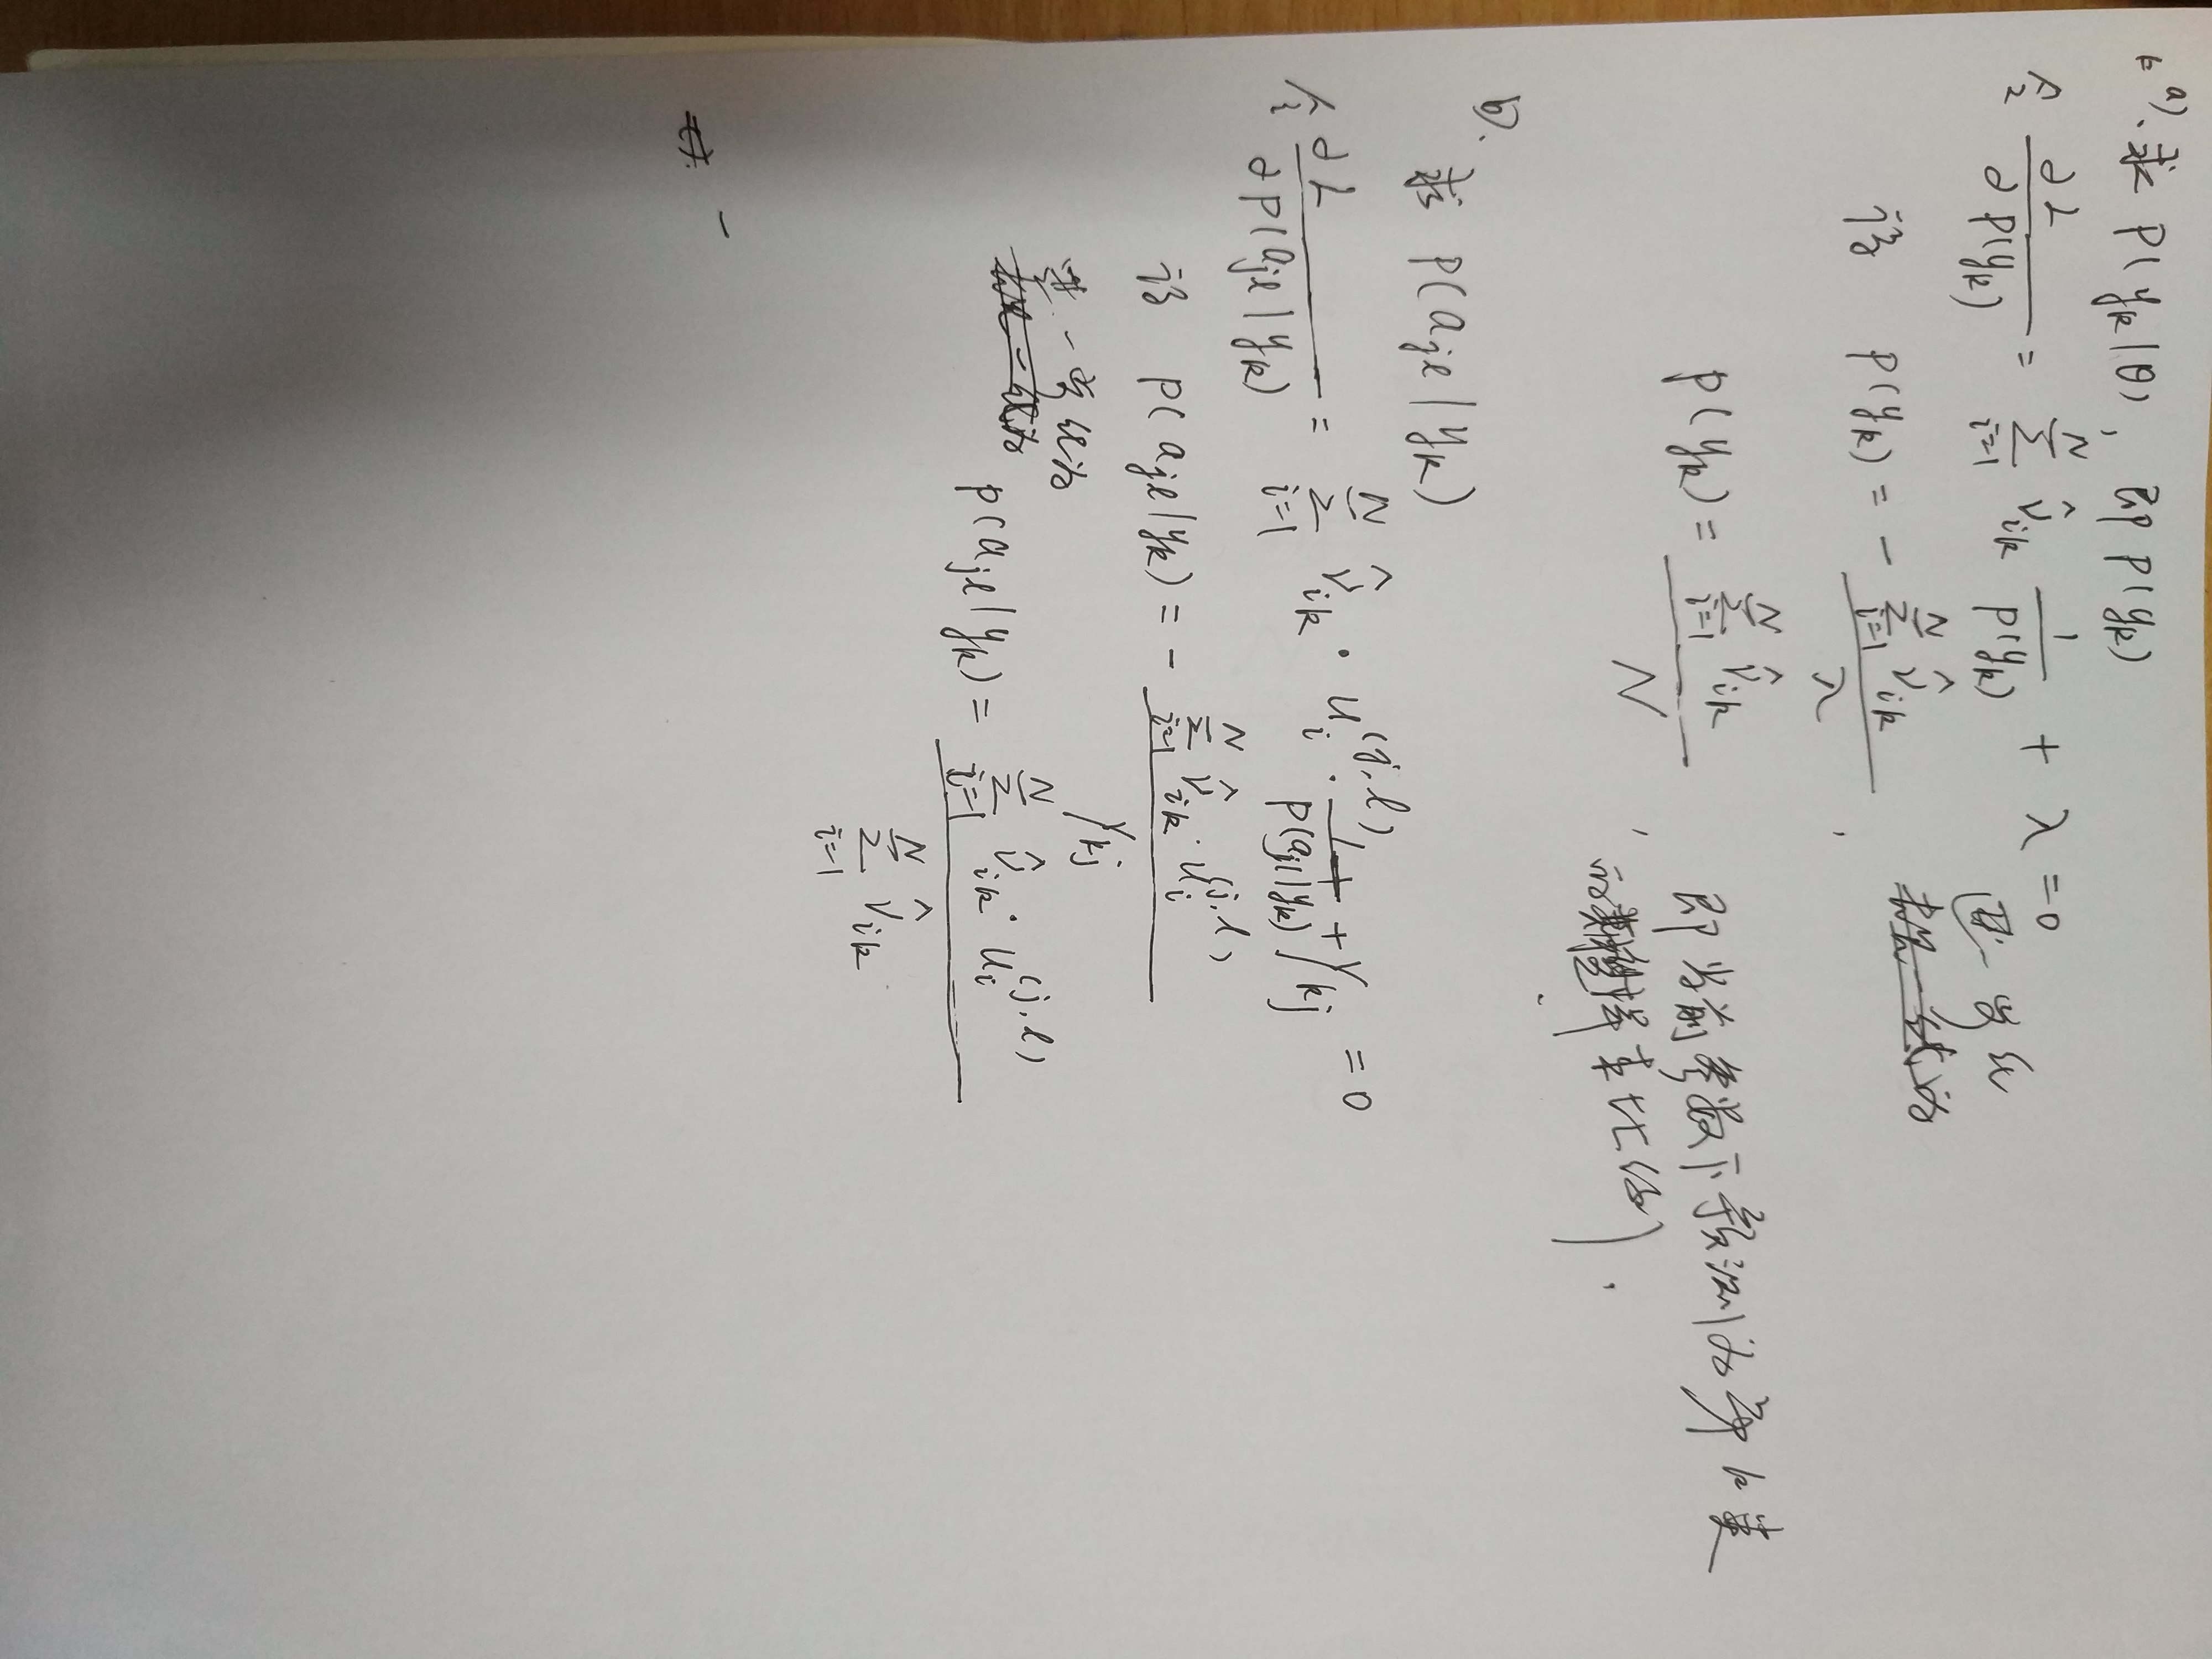 a). 求 P(y_k|θ), 即 P(y_k)
令 ∂L/∂P(y_k) = Σ_{i=1}^{N} γ̂_{ik} 1/P(y_k) + λ = 0
得 P(y_k) = - Σ_{i=1}^{N} γ̂_{ik} / λ,
归一化为
P(y_k) = Σ_{i=1}^{N} γ̂_{ik} / N, 即当前参数下预测为第k类
的期望样本比例.
b).
求 P(a_{jl}|y_k)
令 ∂L/∂P(a_{jl}|y_k) = Σ_{i=1}^{N} γ̂_{ik} · u_i^{(j,l)} · 1/P(a_{jl}|y_k) + γ_{kj} = 0
得 P(a_{jl}|y_k) = - Σ_{i=1}^{N} γ̂_{ik} · u_i^{(j,l)} / γ_{kj}
归一化为
P(a_{jl}|y_k) = Σ_{i=1}^{N} γ̂_{ik} · u_i^{(j,l)} / Σ_{i=1}^{N} γ̂_{ik}